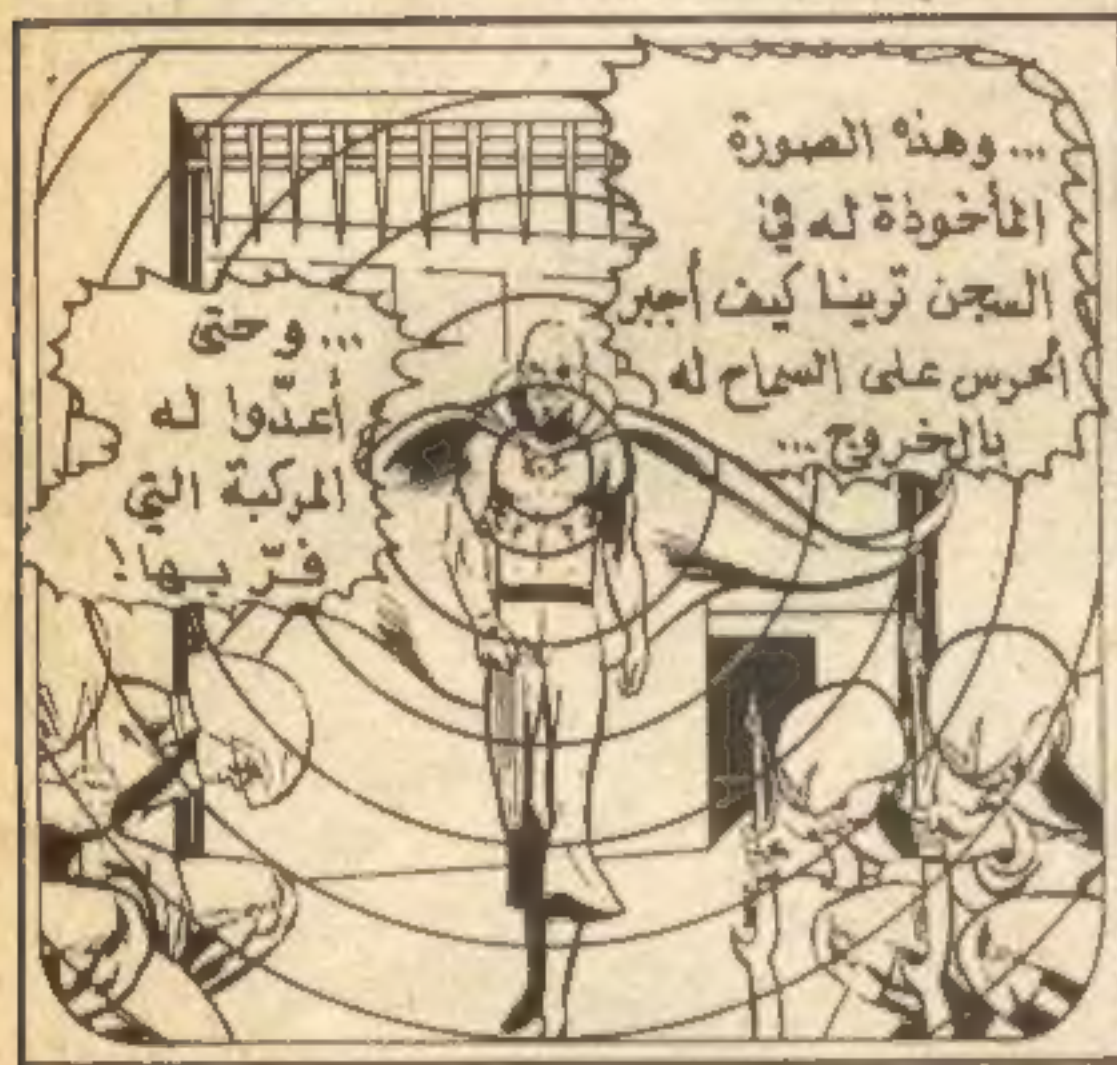 ... وهذه الصورة
المأخوذة له في
السجن ترينا كيف أجبر
الحرس على السماح له
بالخروج ...
... وحتى
أعدّوا له
المركبة التي
فرّ بها!